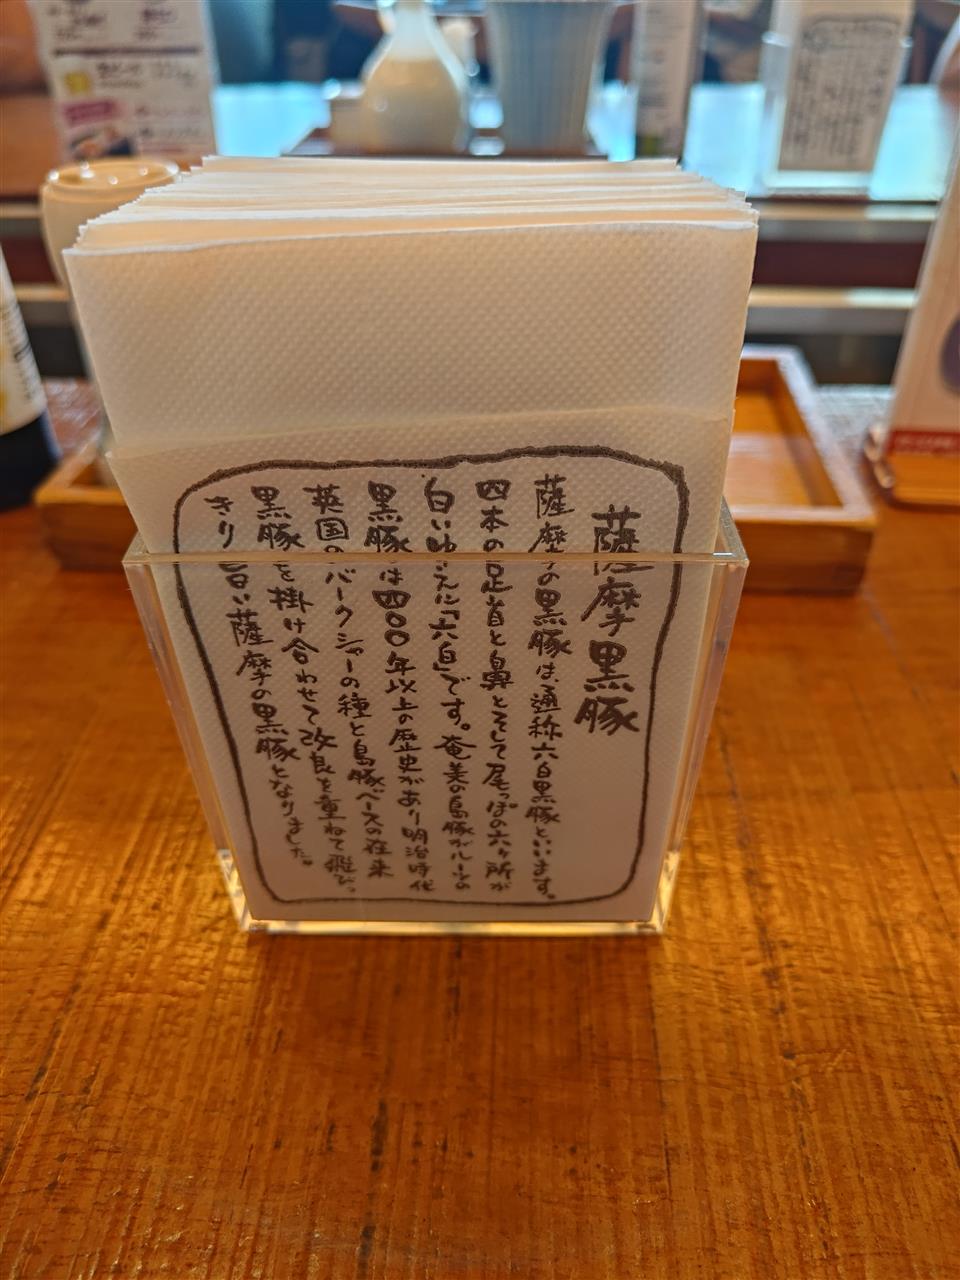 薩摩黒豚
薩摩の黒豚は、通称六白黒豚といいます。
四本の足首と鼻とそして尾っぽの六ヶ所が
白いゆえに「六白」です。奄美の島豚がルーツの
黒豚は四〇〇年以上の歴史があり明治時代
英国のバークシャーの種と島豚ベースの在来
黒豚を掛け合わせて改良を重ねて飛びっ
きり旨い薩摩の黒豚となりました。